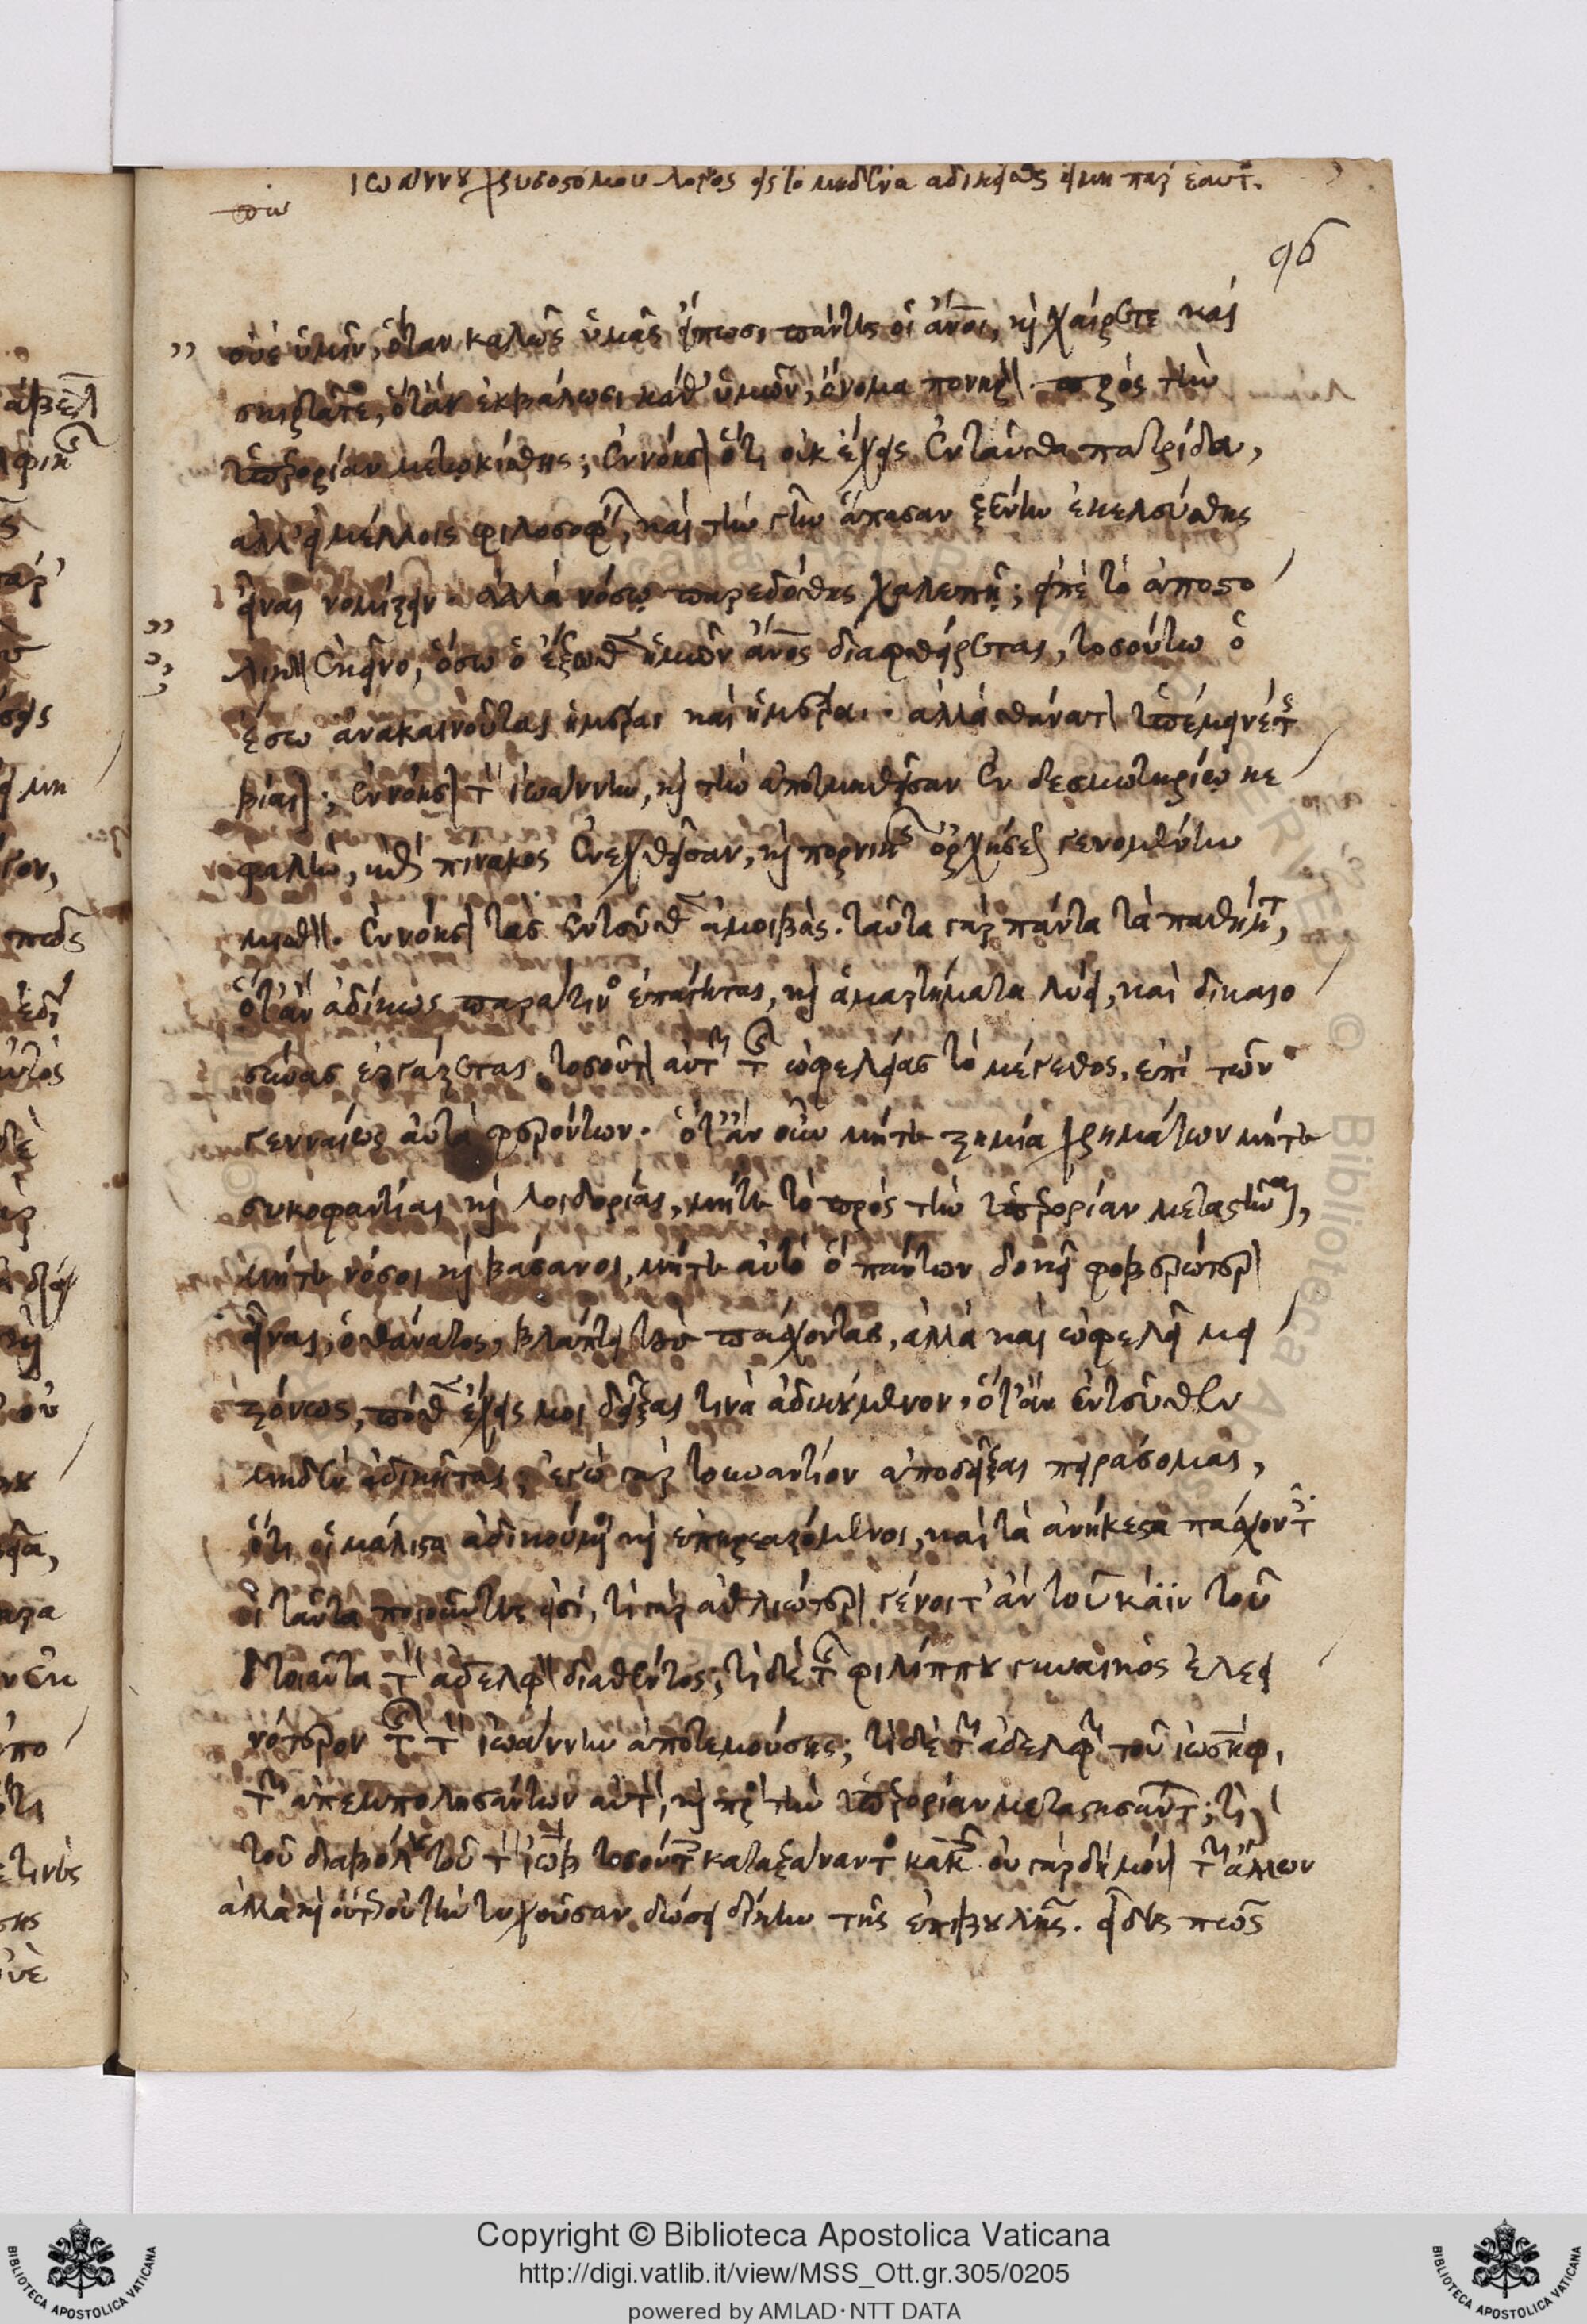 ιωάννου χρυσοστόμου λόγος εἰς το μηδένα αδικεῖσθαι εἰ μη παρ εαυτ.
ϟϛ
οὐὲ ὑμῖν, ὅταν καλῶς ὑμᾶς εἴπωσι πάντες οἱ ἄνοι, κὶ χαίρετε καὶ
σκιρτᾶτε, ὅτ' ἂν ἐκβάλωσι καθ' ὑμῶν, ὄνομα πονηρὸν. πρὸς τὴν
ὑπερορίαν μετῳκίσθης; ἐννόησον ὅτι οὐκ ἔχεις ἐνταῦθα πατρίδα,
ἀλλ' εἰ μέλλοις φιλοσοφεῖν, καὶ τὴν γῆν ἅπασαν ξένην ἐκελεύσθης
εἶναι νομίζειν. ἀλλὰ νόσῳ παρεδόθης χαλεπῇ; εἰπὲ τὸ ἀποστο
λικὸν ἐκεῖνο, ὅσω ὁ ἔξωθεν ἡμῶν ἄνος διαφθείρεται, τοσούτω ὁ
ἔσω ἀνακαινοῦται ἡμέραι καὶ ἡμέραι. ἀλλὰ θάνατον ὑπέμεινέ τις
βίαιον; ἐννόησον τὸν ἰωάννην, κὶ τὴν ἀποτμηθεῖσαν ἐν δεσμωτηρίῳ κε
φαλὴν, κὶ ἐπὶ πίνακος ἐνεχθεῖσαν, κὶ πορνικῆς ὀρχήσεως γενομένην
μισθὸν. ἐννόησον τὰς ἐντεῦθεν ἀμοιβάς. ταῦτα γὰρ πάντα τὰ παθήματα,
ὅτ' ἂν ἀδίκως παρά τινος ἐπάγηται, κὶ ἁμαρτήματα λύει, καὶ δικαιο
σύνας ἐργάζεται. τοσοῦτον αὐτῶν τῆς ὠφελείας τὸ μέγεθος, ἐπὶ τῶν
γενναίως αὐτὰ φερόντων. ὅτ' ἂν οὖν μήτε ζημία χρημάτων μήτε
συκοφαντίαι κὶ λοιδορίαι, μήτε τὸ πρὸς τὴν ὑπερορίαν μεταστῆναι,
μήτε νόσοι κὶ βάσανοι, μήτε αὐτὸ ὃ πάντων δοκεῖ φοβερώτερον
εἶναι, ὁ θάνατος, βλάπτει τοὺς πάσχοντας, ἀλλὰ καὶ ὠφελεῖ μει
ζόνως, πόθεν ἔχεις μοι δεῖξαι τινὰ ἀδικούμενον, ὅτ' ἂν ἐντεῦθεν
μηδὲν ἀδικῆται; ἐγὼ γὰρ τοὐναντίον ἀποδεῖξαι πειράσομαι,
ὅτι οἱ μάλιστα ἀδικούμενοι κὶ ἐπηρεαζόμενοι, καὶ τὰ ἀνήκεστα πάσχοντες
οἱ ταῦτα ποιοῦντές εἰσι, τί γὰρ ἀθλιώτερον γένοιτ' ἂν τοῦ κάϊν τοῦ
τοιαῦτα τὸν ἀδελφὸν διαθέντος; τί δὲ τῆς φιλίππου γυναικὸς ἐλεει
νότερον τῆς τὸν ἰωάννην ἀποτεμούσης; τί δὲ τῶν ἀδελφῶν τοῦ ἰωσὴφ,
τῶν ἀπεμπολησάντων αὐτὸν, κὶ πρὸς τὴν ὑπερορίαν μεταστησάντων; τί
τοῦ διαβόλου τοῦ τὸν ἰὼβ τοσούτοις καταξάναντος κακοῖς. οὐ γὰρ δὴ μόνον τῶν ἄλλων
ἀλλὰ κὶ οὕτως οὐ τὴν τυχοῦσαν δώσει δίκην τῆς ἐπιβουλῆς. εἶδες πῶς
Copyright © Biblioteca Apostolica Vaticana
http://digi.vatlib.it/view/MSS_Ott.gr.305/0205
powered by AMLAD·NTT DATA